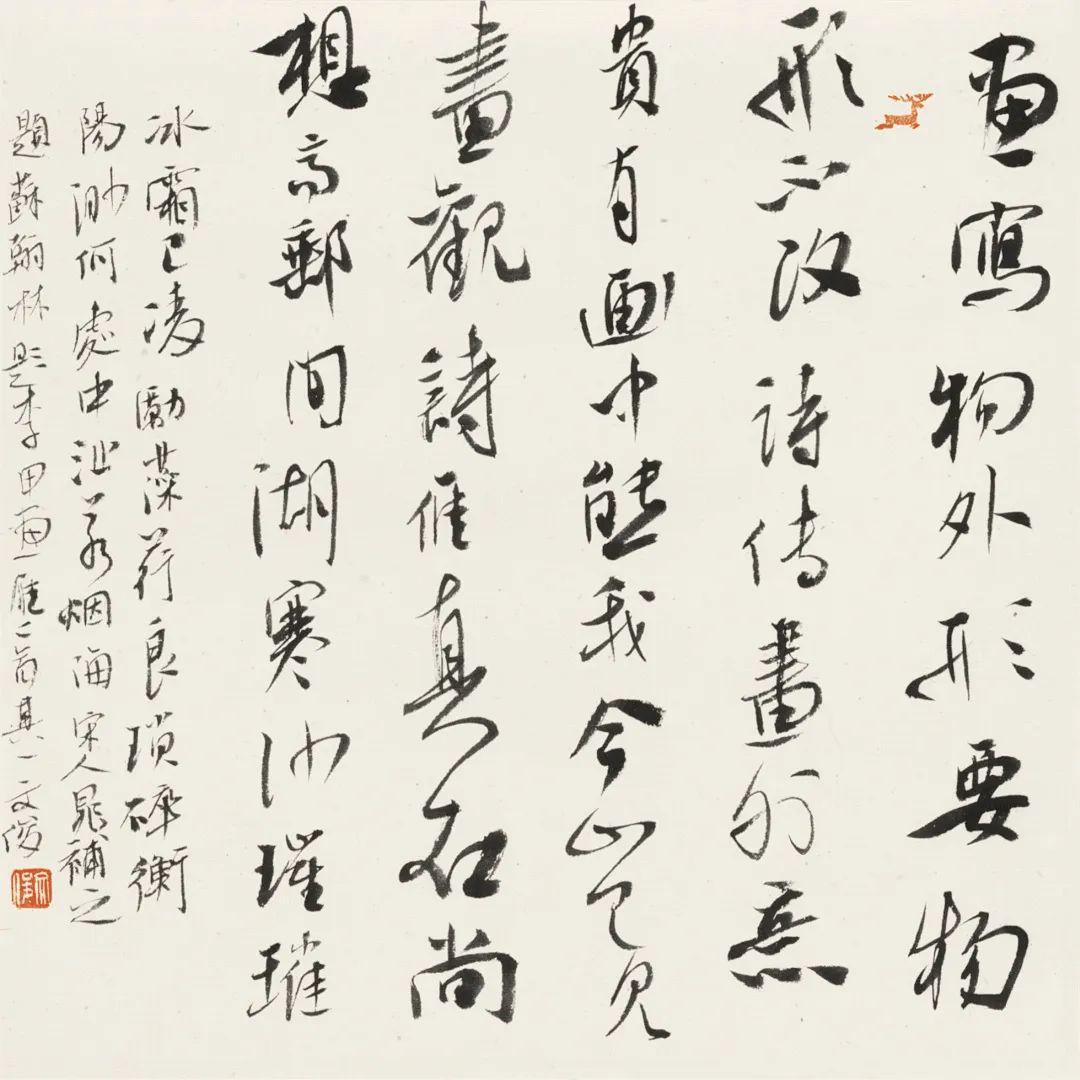 画寫物外形要物
形不改詩傳畫外意
貴有画中態我今豈見
畫觀詩雁真在尚
想高郵間湖寒沙璀璀
冰霜已凌勵藻荇良瑣碎衡
陽渺何處中沚若烟海宋人晁補之
題蘇翰林題李甲画雁二首其一文俊